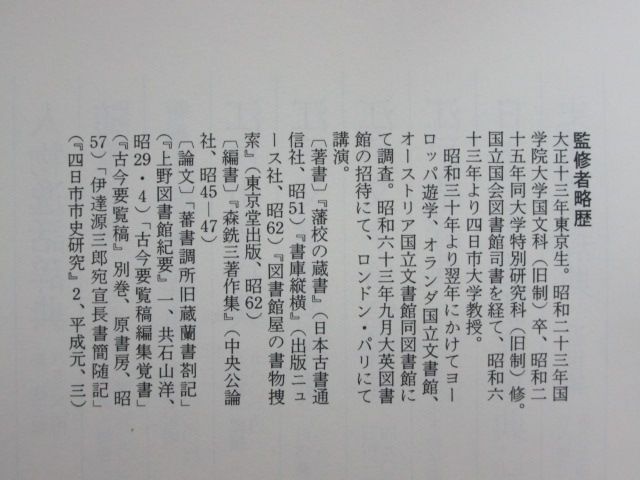 監修者略歴
大正十三年東京生。昭和二十三年国
学院大学国文科（旧制）卒、昭和二
十五年同大学特別研究科（旧制）修。
国立国会図書館司書を経て、昭和六
十三年より四日市大学教授。
昭和三十年より翌年にかけてヨー
ロッパ遊学、オランダ国立文書館、
オーストリア国立文書館同図書館に
て調査。昭和六十三年九月大英図書
館の招待にて、ロンドン・パリにて
講演。
〔著書〕『藩校の蔵書』（日本古書通
信社、昭51）『書庫縦横』（出版ニュ
ース社、昭62）『図書館屋の書物捜
索』（東京堂出版、昭62）
〔編書〕『森銑三著作集』（中央公論
社、昭45―47）
〔論文〕「蕃書調所旧蔵蘭書剳記」
（『上野図書館紀要』一、共石山洋、
昭29・4）「古今要覧稿編集覚書」
（『古今要覧稿』別巻、原書房、昭
57）「伊達源三郎宛宣長書簡随記」
（『四日市市史研究』2、平成元、三）